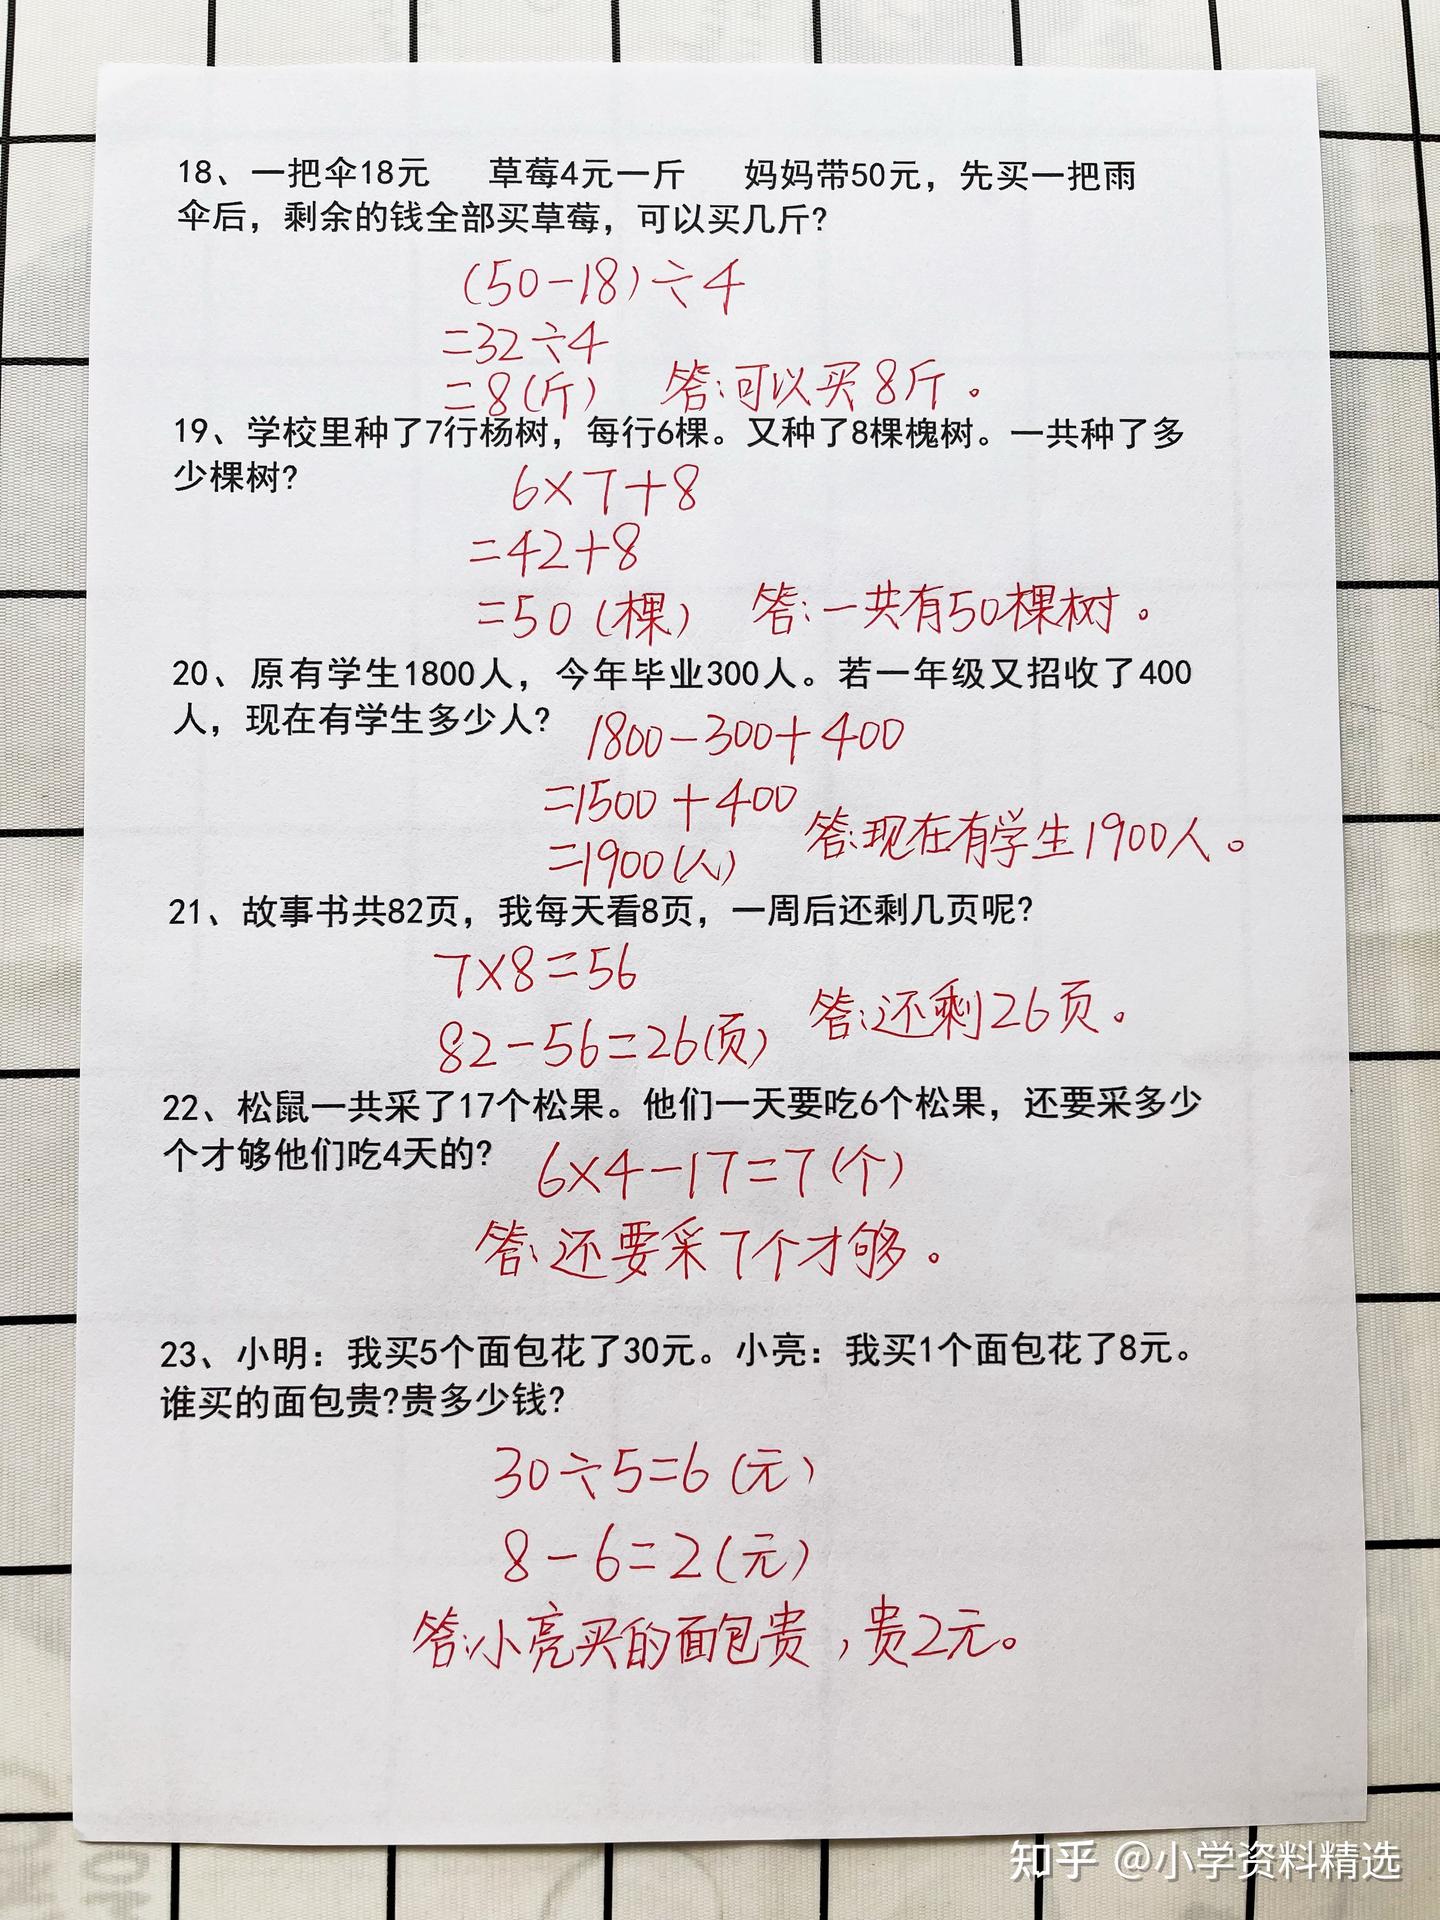 18、一把伞18元 草莓4元一斤 妈妈带50元，先买一把雨
伞后，剩余的钱全部买草莓，可以买几斤?
(50-18)÷4
=32÷4
=8(斤) 答:可以买8斤。
19、学校里种了7行杨树，每行6棵。又种了8棵槐树。一共种了多
少棵树?
6×7+8
=42+8
=50(棵) 答:一共有50棵树。
20、原有学生1800人，今年毕业300人。若一年级又招收了400
人，现在有学生多少人?
1800-300+400
=1500+400
=1900(人) 答:现在有学生1900人。
21、故事书共82页，我每天看8页，一周后还剩几页呢?
7×8=56
82-56=26(页) 答:还剩26页。
22、松鼠一共采了17个松果。他们一天要吃6个松果，还要采多少
个才够他们吃4天的?
6×4-17=7(个)
答:还要采7个才够。
23、小明：我买5个面包花了30元。小亮：我买1个面包花了8元。
谁买的面包贵?贵多少钱?
30÷5=6(元)
8-6=2(元)
答:小亮买的面包贵，贵2元。
知乎 @小学资料精选